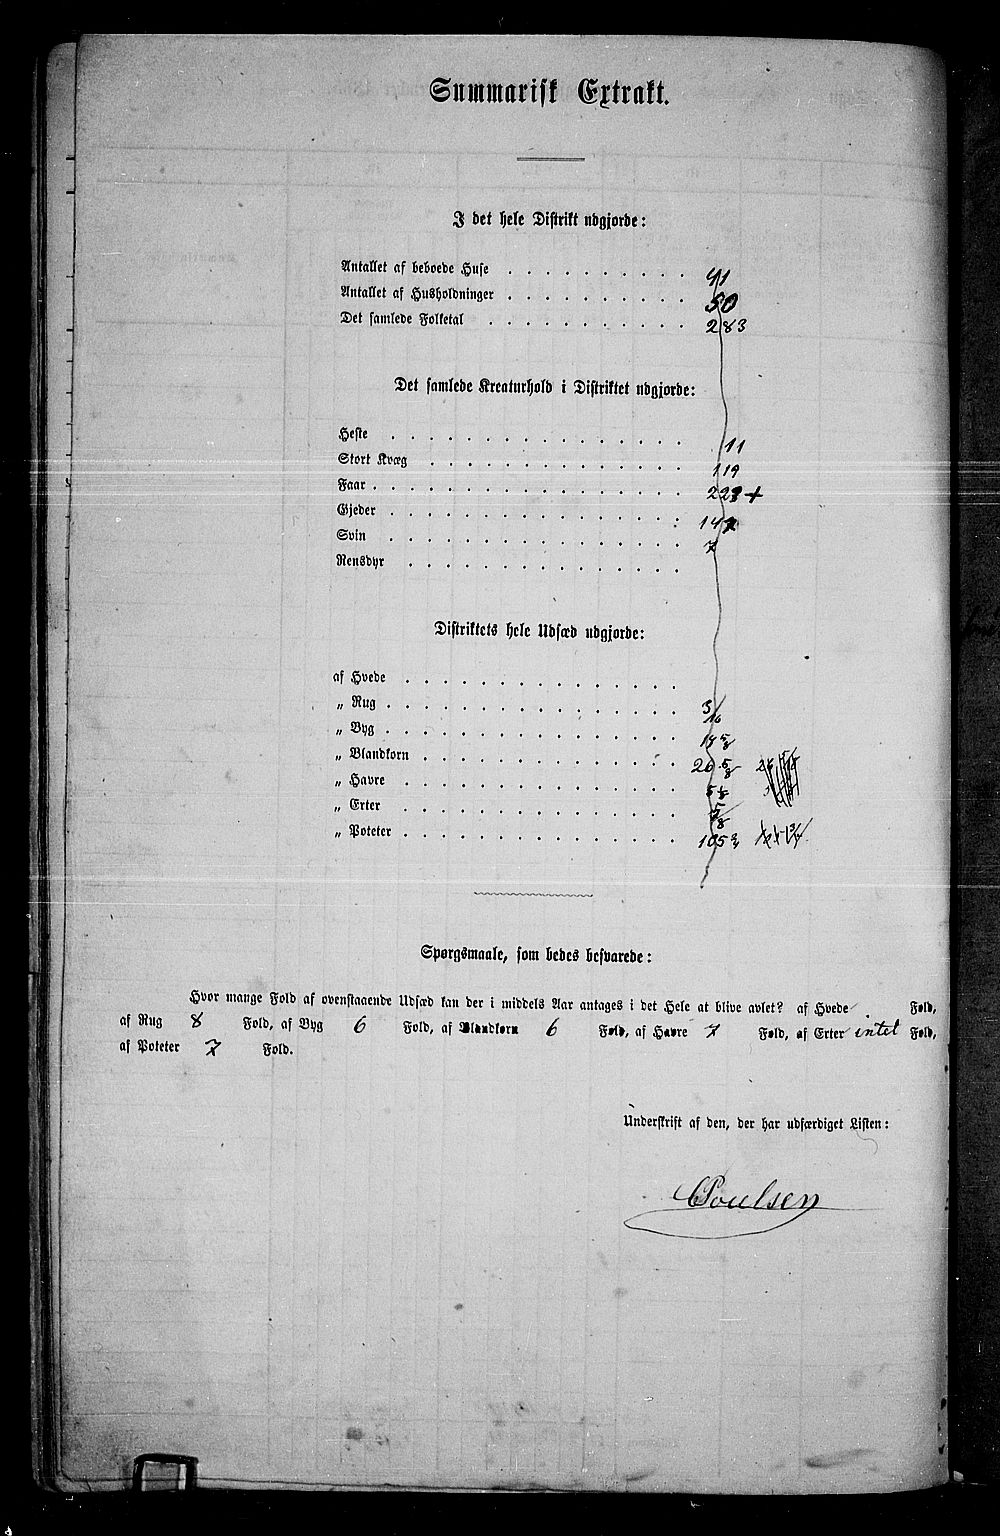 Summarisk Extrakt.
I det hele Distrikt udgjorde:
Antallet af beboede Huse . . . . . . . . . . 41
Antallet af Husholdninger . . . . . . . . . . 50
Det samlede Folketal . . . . . . . . . . . 283
Det samlede Kreaturhold i Distriktet udgjorde:
Heste . . . . . . . . . . . . . . . . 11
Stort Kvæg . . . . . . . . . . . . . . 119
Faar . . . . . . . . . . . . . . . . . 223 +
Gjeder . . . . . . . . . . . . . . . . 147
Svin . . . . . . . . . . . . . . . . 7
Rensdyr . . . . . . . . . . . . . . .
Distriktets hele Udsæd udgjorde:
af Hvede . . . . . . . . . . . . . . .
„ Rug . . . . . . . . . . . . . . . . 3/16
„ Byg . . . . . . . . . . . . . . . . 14 5/8
„ Blandkorn . . . . . . . . . . . . . . 26 5/8
„ Havre . . . . . . . . . . . . . . .
„ Erter . . . . . . . . . . . . . . . 5/8
„ Poteter . . . . . . . . . . . . . . 105 3/4
Spørgsmaale, som bedes besvarede:
Hvor mange Fold af ovenstaaende Udsæd kan der i middels Aar antages i det Hele at blive avlet? af Hvede Fold,
af Rug 8 Fold, af Byg 6 Fold, af Blandkorn 6 Fold, af Havre 7 Fold, af Erter intet Fold,
af Poteter 7 Fold.
Underskrift af den, der har udfærdiget Listen:
Poulsen